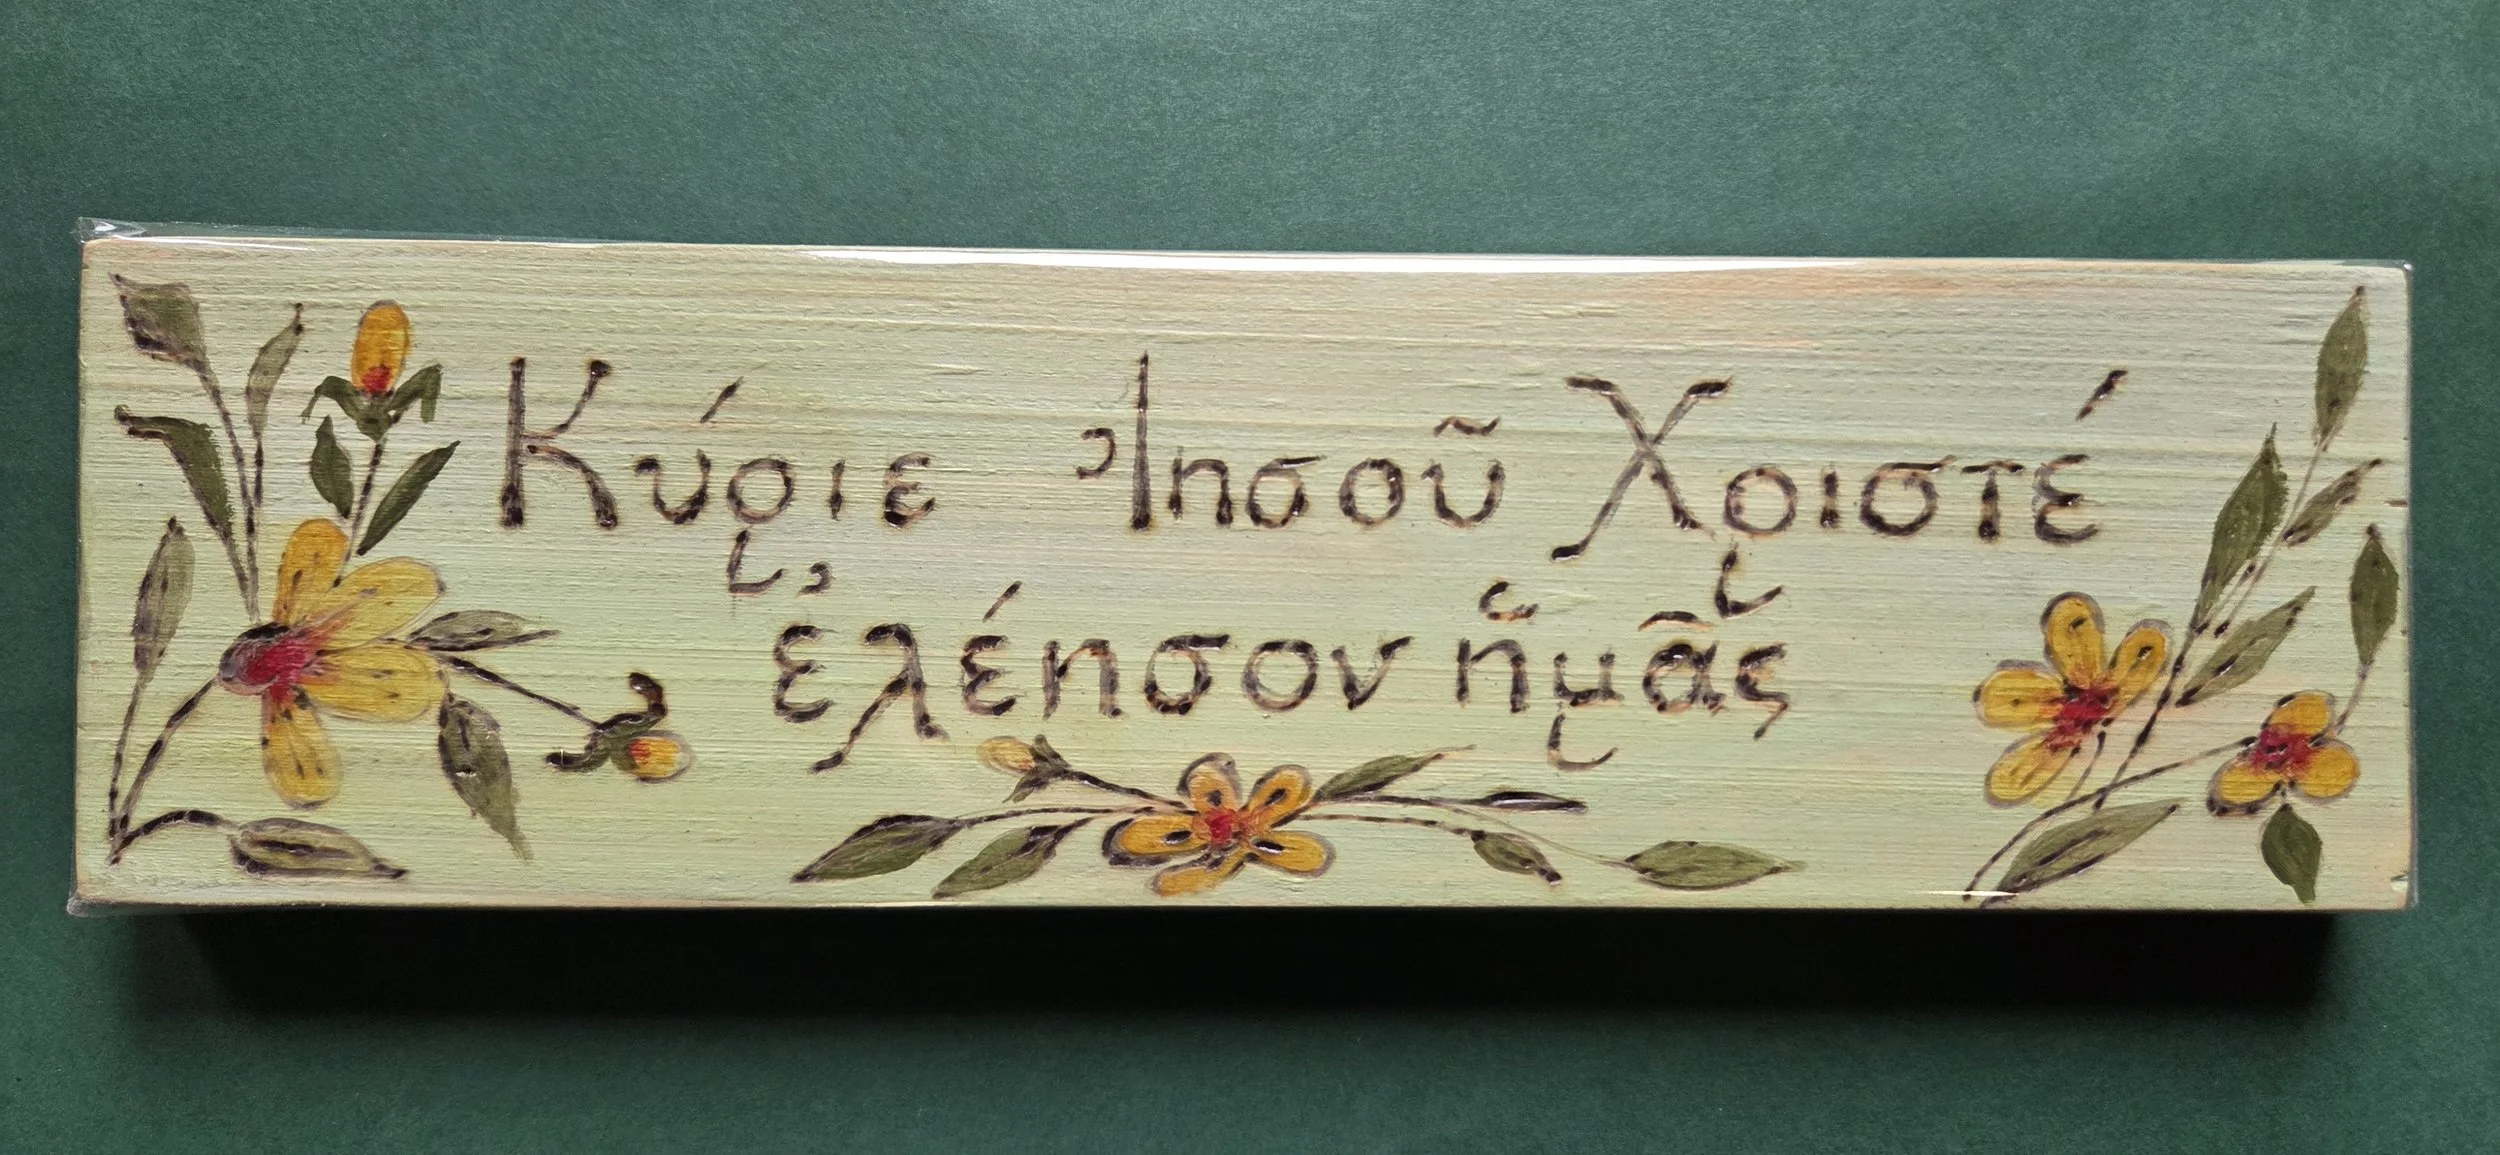 Κύριε Ἰησοῦ Χριστέ
ἐλέησον ἡμᾶς